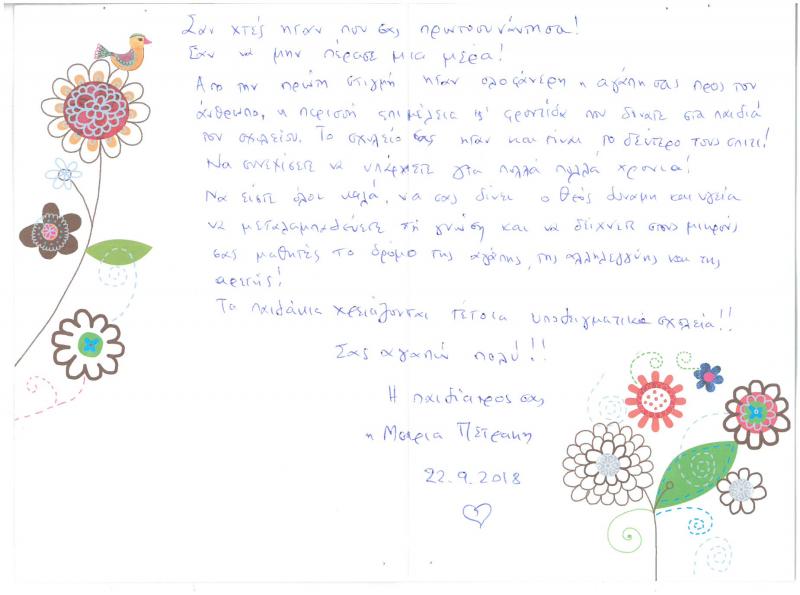 Σαν χτές ηταν που σας πρωτοσυνάντησα!
Σαν να μην πέρασε μια μέρα!
Απο την πρώτη στιγμή ηταν ολοφάνερη η αγάπη σας προς τον
άνθρωπο, η περισσή επιμέλεια κι' φροντίδα που δινατε στα παιδιά
του σχολείου. Το σχολείο σας ηταν και είναι το δεύτερο τους σπιτι!
Να συνεχίσετε να υπάρχετε για πολλά πολλά χρονια!
Να είστε όλοι καλά, να σας δίνει ο Θεός δυναμη και υγεία
να μεταλαμπαδεύετε τη γνώση και να δείχνετε στους μικρούς
σας μαθητές το δρόμο της αγάπης, της αλληλεγγύης και της
αρετής!
Τα παιδάκια χρειάζονται τέτοια υποδειγματικα σχολεία!!
Σας αγαπώ πολύ!!
Η παιδίατρος σας
η Μαρια Πετρακη
22.9.2018